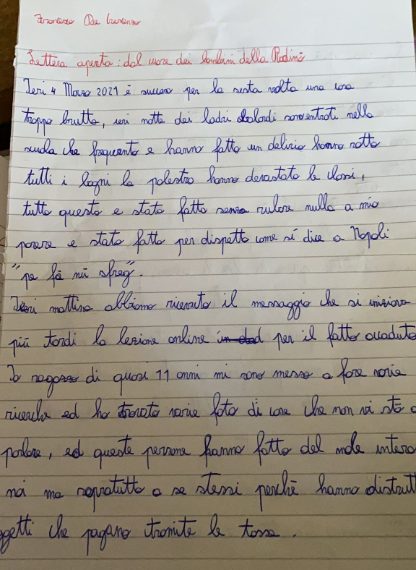 Lettera aperta: dal cuore dei bambini della Rodinò
Ieri 4 Marzo 2021 è successo per la sesta volta una cosa
troppo brutta, ieri notte dei ladri sono entrati nella
scuola che frequento e hanno fatto un delirio hanno rotto
tutti i bagni la palestra hanno devastato le classi,
tutto questo e stato fatto senza rubare nulla a mio
parere e stato fatto per dispetto come si dice a Napoli
"pe fà nu sfreg".
Ieri mattina abbiamo ricevuto il messaggio che si iniziava
più tardi la lezione online in dad per il fatto accaduto
Io ragazzo di quasi 11 anni mi sono messo a fare varie
ricerche ed ho trovato varie foto di cose che non vi sto a
parlare, ed queste persone hanno fatto del male
noi ma sopratutto a se stessi perchè hanno distrutt
ggetti che pagano tramite le tasse.